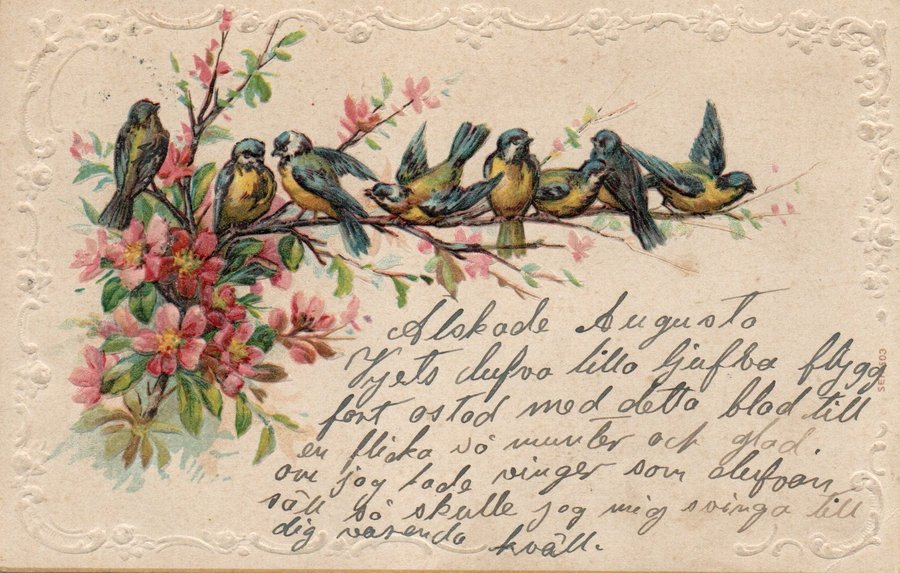 Alskade Augusta
Vjets dufva lilla ljufva flygg
fort astad med detta blad till
en flicka så munter och glad
om jag hade vinger som dufvan
sätt så skulle jag mig svinga till
dig varenda kväll.